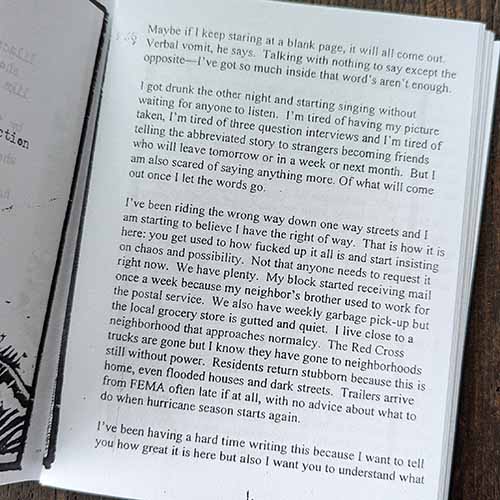 Maybe if I keep staring at a blank page, it will all come out.
Verbal vomit, he says. Talking with nothing to say except the
opposite—I've got so much inside that word's aren't enough.
I got drunk the other night and starting singing without
waiting for anyone to listen. I'm tired of having my picture
taken, I'm tired of three question interviews and I'm tired of
telling the abbreviated story to strangers becoming friends
who will leave tomorrow or in a week or next month. But I
am also scared of saying anything more. Of what will come
out once I let the words go.
I've been riding the wrong way down one way streets and I
am starting to believe I have the right of way. That is how it is
here: you get used to how fucked up it all is and start insisting
on chaos and possibility. Not that anyone needs to request it
right now. We have plenty. My block started receiving mail
once a week because my neighbor's brother used to work for
the postal service. We also have weekly garbage pick-up but
the local grocery store is gutted and quiet. I live close to a
neighborhood that approaches normalcy. The Red Cross
trucks are gone but I know they have gone to neighborhoods
still without power. Residents return stubborn because this is
home, even flooded houses and dark streets. Trailers arrive
from FEMA often late if at all, with no advice about what to
do when hurricane season starts again.
I've been having a hard time writing this because I want to tell
you how great it is here but also I want you to understand what